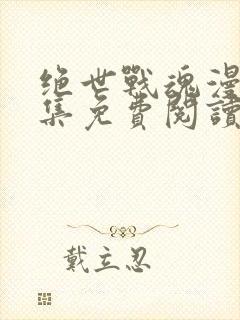 绝世戰魂漫
集免費閱讀
戴立忍